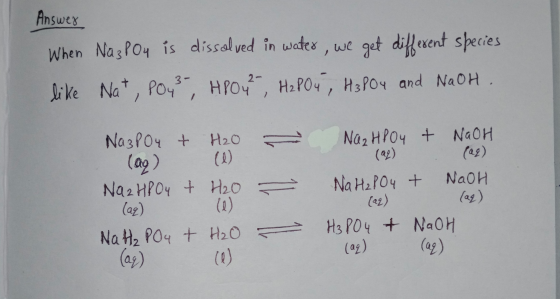 Answer
When Na₃PO₄ is dissolved in water, we get different species
like Na⁺, PO₄³⁻, HPO₄²⁻, H₂PO₄⁻, H₃PO₄ and NaOH.
Na₃PO₄ + H₂O ⇌ Na₂HPO₄ + NaOH
(aq) (l) (aq) (aq)
Na₂HPO₄ + H₂O ⇌ NaH₂PO₄ + NaOH
(aq) (l) (aq) (aq)
NaH₂PO₄ + H₂O ⇌ H₃PO₄ + NaOH
(aq) (l) (aq) (aq)